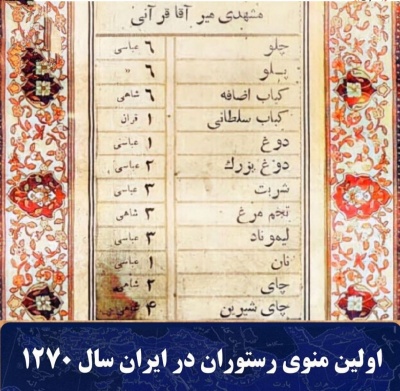 مشهدی میر آقا قرآنی
چلو ۶ عباسی
پلو ۶ "
کباب اضافه ۶ شاهی
کباب سلطانی ۱ قران
دوغ ۱ عباسی
دوغ بزرگ ۲ عباسی
شربت ۳ عباسی
تخم مرغ ۳ شاهی
لیموناد ۳ عباسی
نان ۱ عباسی
چای ۲ شاهی
چای شیرین ۴
اولین منوی رستوران در ایران سال ۱۲۷۰